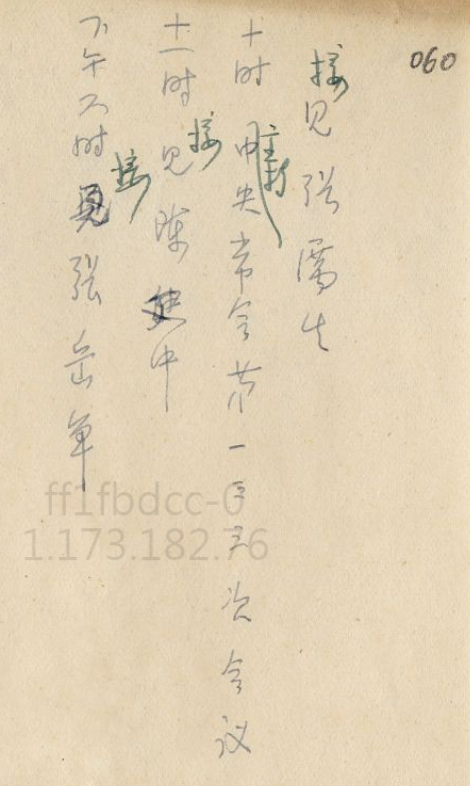 060
接见张厲生
十时主持中央常会第一百三次会议
十一时接见陈中
下午时接见张岳军
ff1fbdcc-0
1.173.182.76